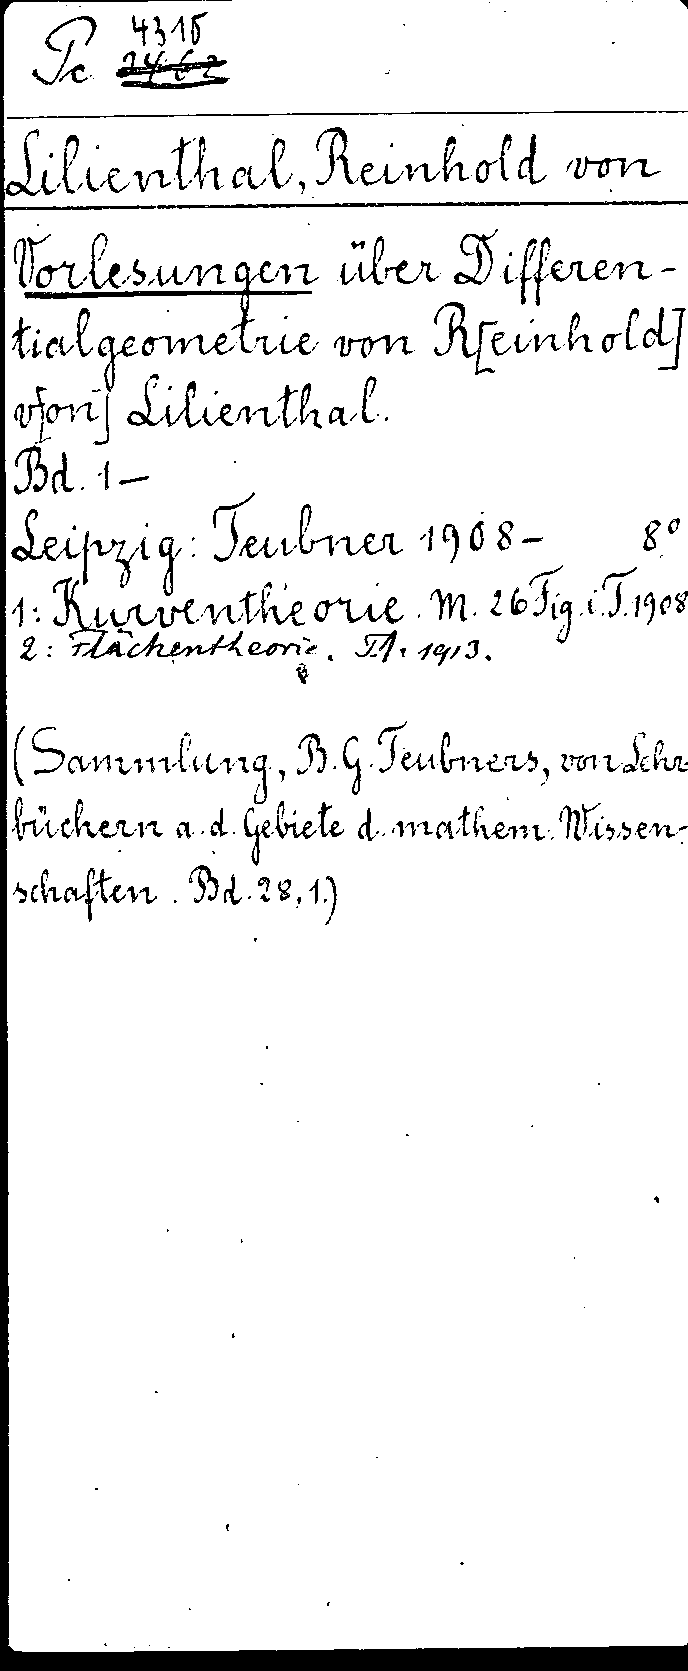 Pc 4315
Lilienthal, Reinhold von
Vorlesungen über Differen-
tialgeometrie von R[einhold]
v[on] Lilienthal.
Bd. 1-
Leipzig: Teubner 1908- 8°
1: Kurventheorie. M. 26 Fig. i. T. 1908
2: Flächentheorie. Tl. 1. 1913.
(Sammlung, B. G. Teubners, von Lehr
büchern a. d. Gebiete d. mathem. Wissen-
schaften. Bd. 28,1.)